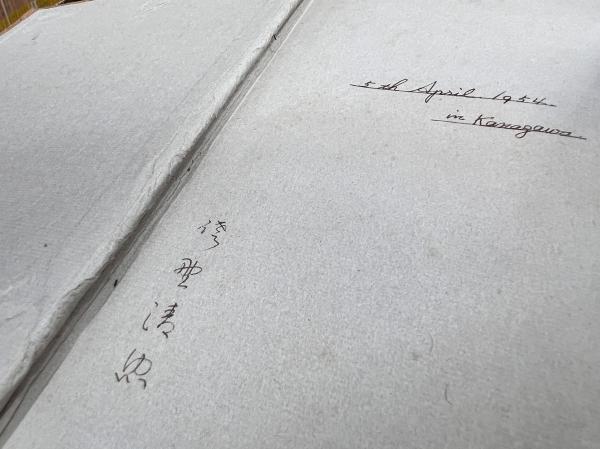 5th April 1954.
in Kanagawa
野清